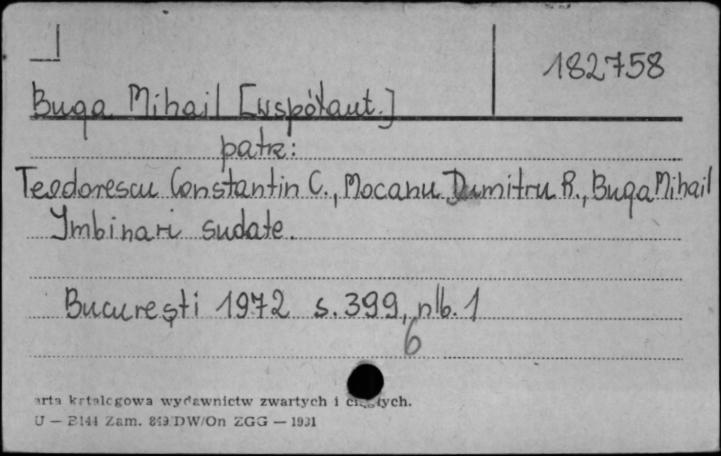 182758
Buga Mihail [współaut.]
patrz:
Teodorescu Constantin C., Mocanu Dumitru R., Buga Mihail
Imbinari sudate.
Bucureşti 1972 s. 399, nlb. 1
6
arta katalogowa wydawnictw zwartych i ciągłych.
U — B144 Zam. DW/On ZGG —